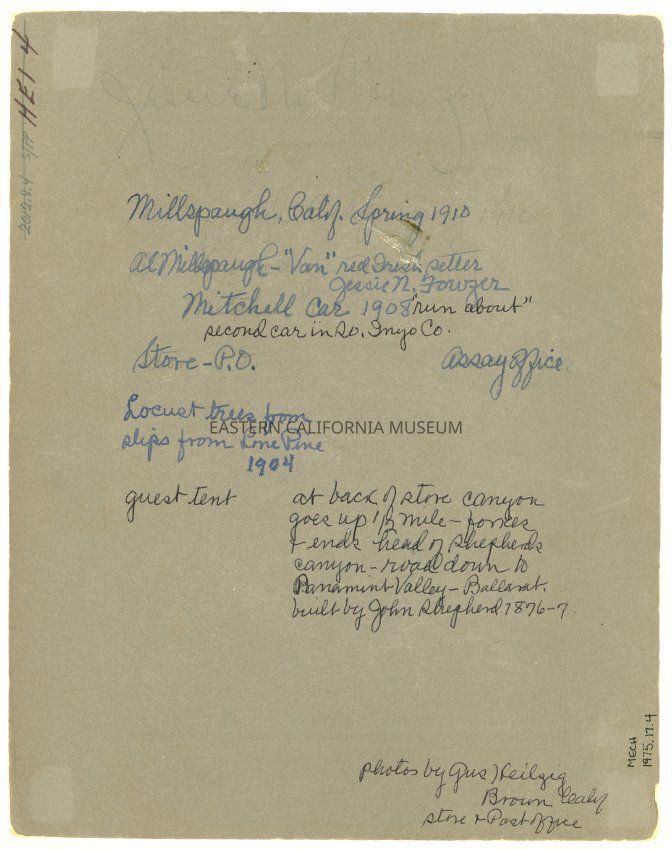 HEI 4
2012.9.4 S/PP
Millspaugh, Calif. Spring 1910
Al Millspaugh - "Van" red Irish setter
Jessie N. Fowzer
Mitchell Car 1908 "run about"
second car in So. Inyo Co.
Store - P.O. Assay office
Locust trees from
slips from Lone Pine
1904
EASTERN CALIFORNIA MUSEUM
guest tent at back of store canyon
goes up 1/2 mile - forkes
+ ends head of Shepherds
canyon - road down to
Panamint Valley - Ballarat.
built by John Shepherd 1876-7.
MECH
1975.17.4
photos by Gus Heilzeg
Brown Calif
store + Post office